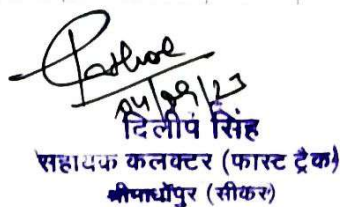 04/09/23
दिलीप सिंह
सहायक कलक्टर (फास्ट ट्रैक)
श्रीमाधोपुर (सीकर)